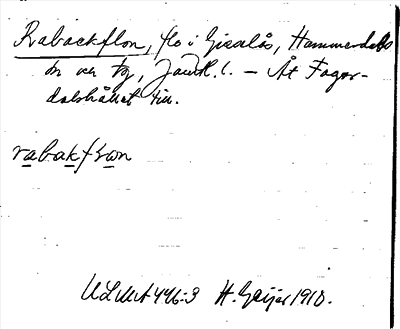 Rabackflon, flo i Gisselås, Hammerdals
sn och tg, Jämtl. l. – Åt Fagor-
dalshållet till.
rabakfɤon
ULMA 446:3 H. Geijer 1910.